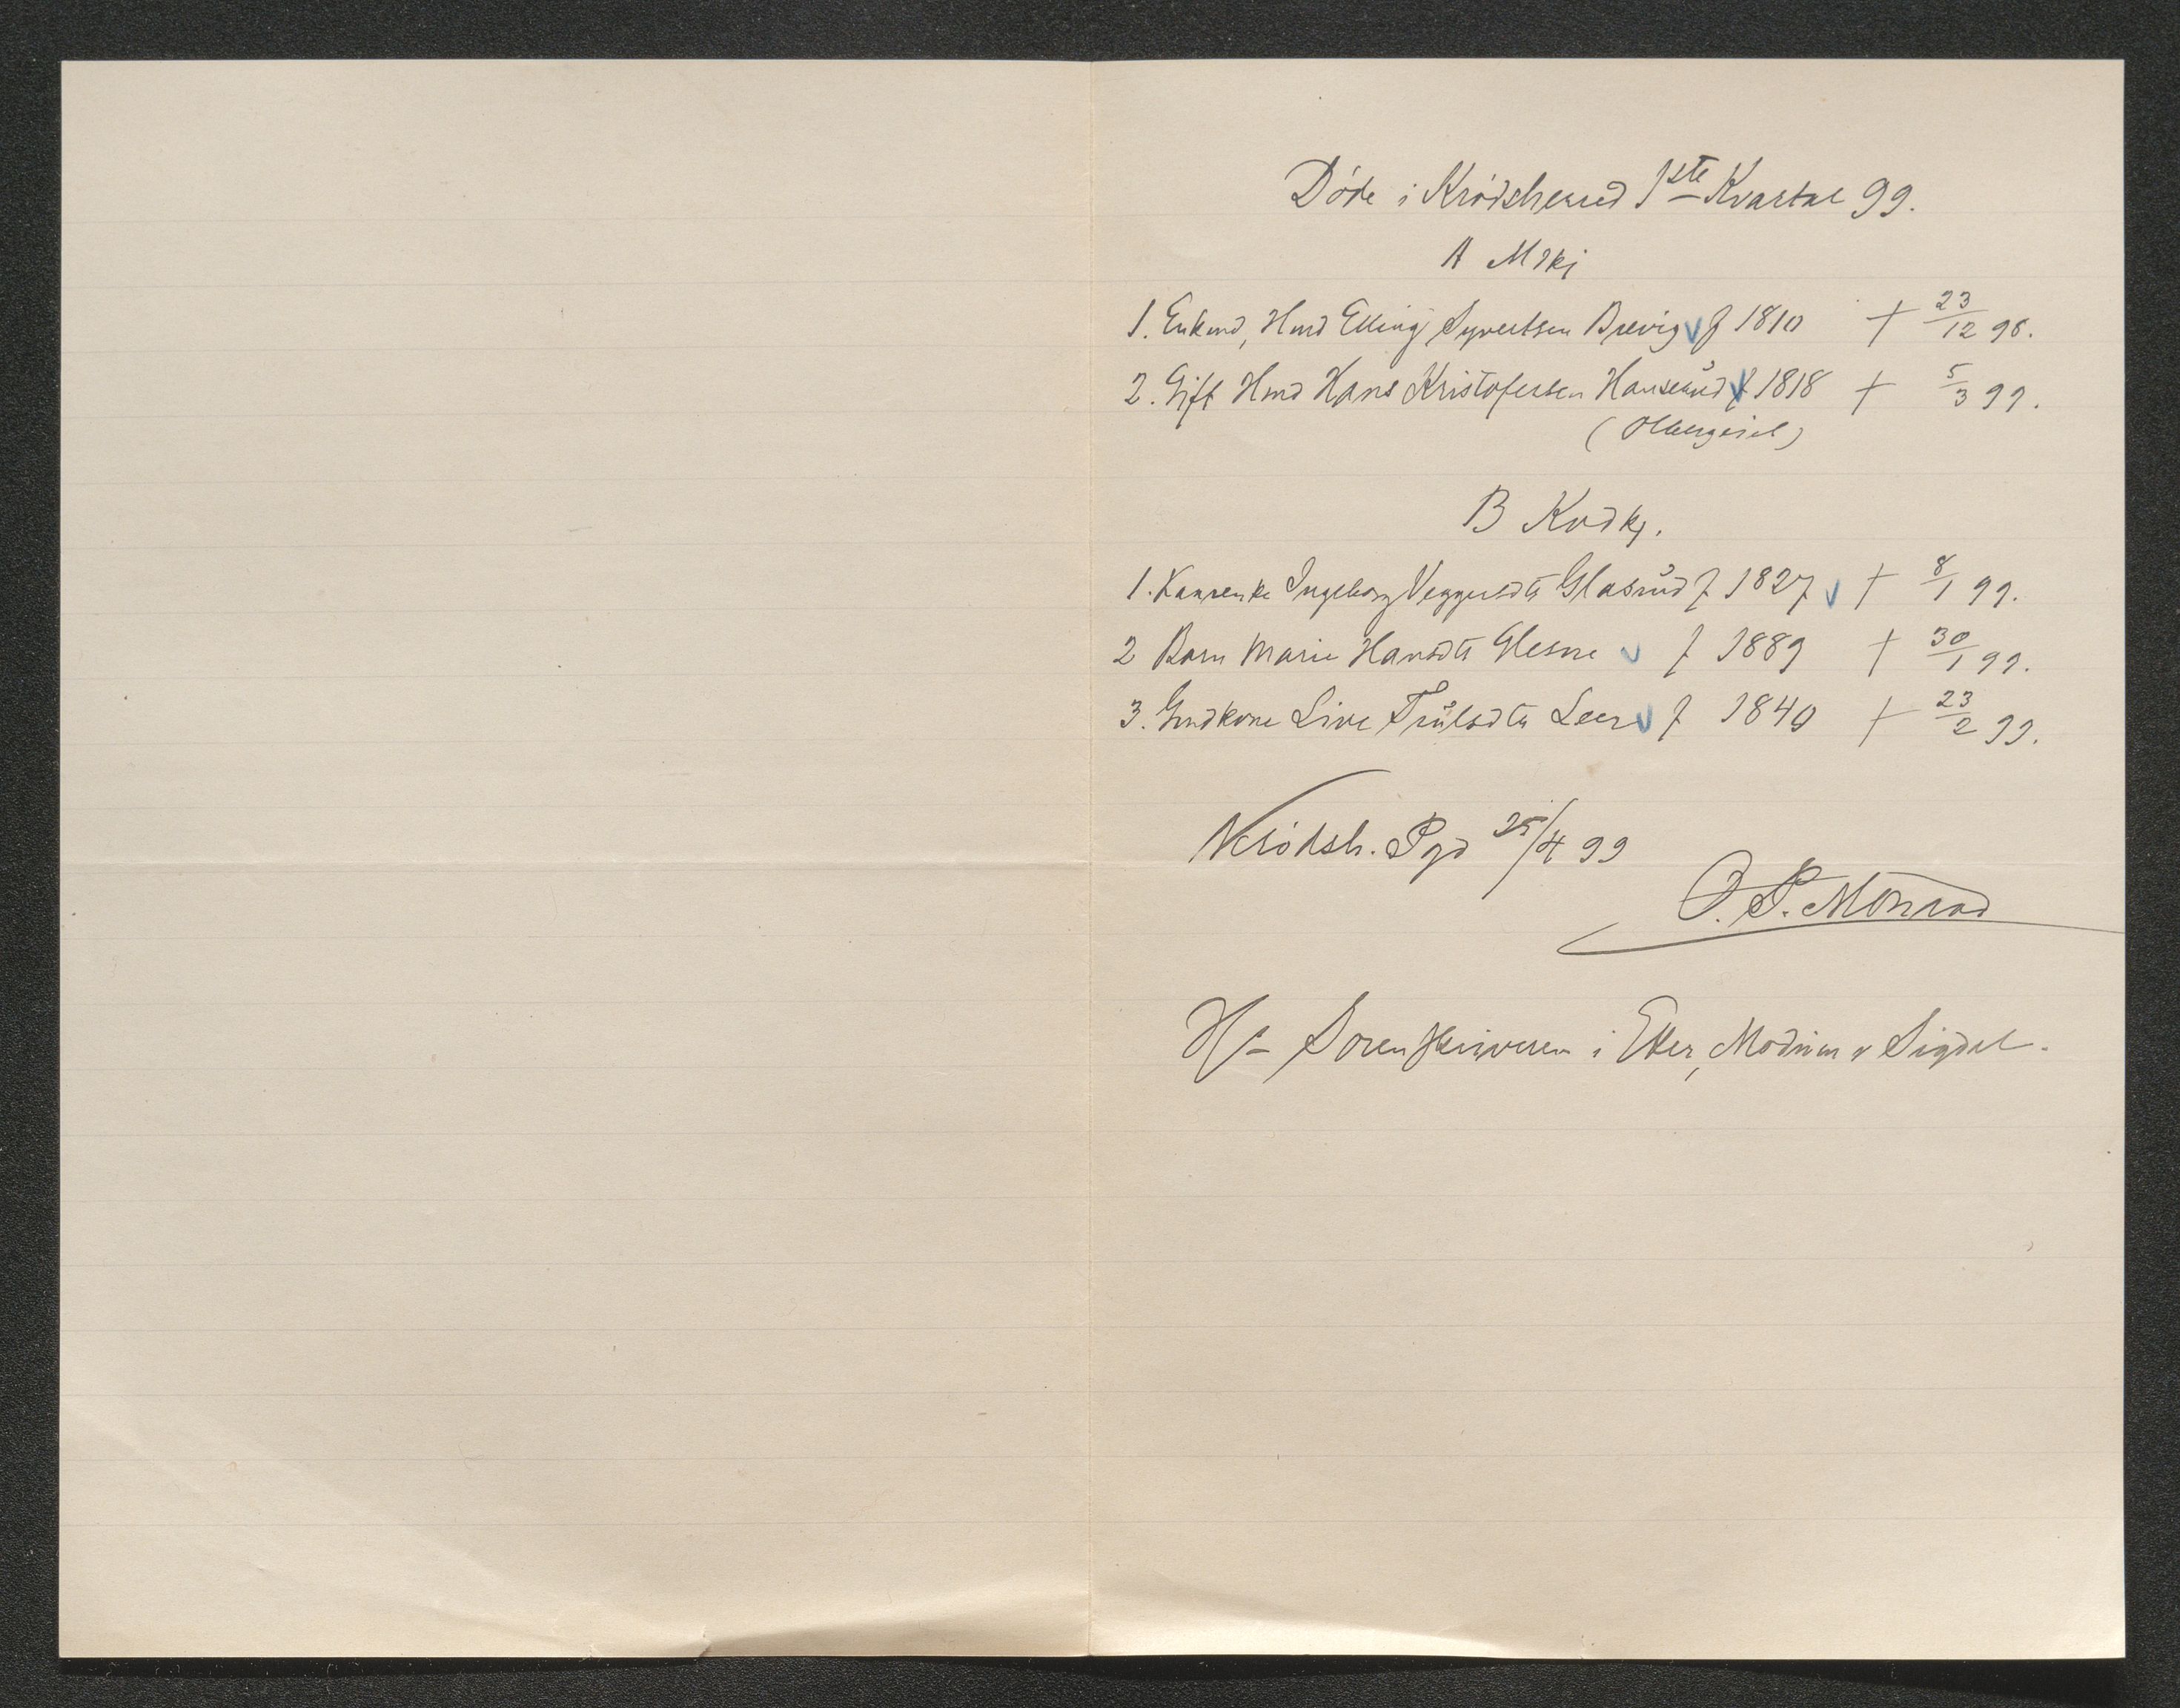 Døde i Krødsherred 1ste Kvartal 99.
A Mskj
1. Enkmd, Hmd Elling Syvertsen Brevig f 1810 † 23/12 98.
2. Gift Hmd Hans Kristofersen Hanserŭd f 1818 † 5/3 99.
B Kvdkj.
1. Kaarenke Ingeborg Veggersdtr Glasrŭd f 1827 † 8/1 99.
2 Barn Marie Hansdtr Glesne f 1889 † 30/1 99.
3. Gmdkone Live Trŭlsdtr Leer f 1840 † 23/2 99.
Krødsh. Pgd 25/4 99
O. P. Monrad
Hr Sorenskriveren i Eker, Modum & Sigdal.